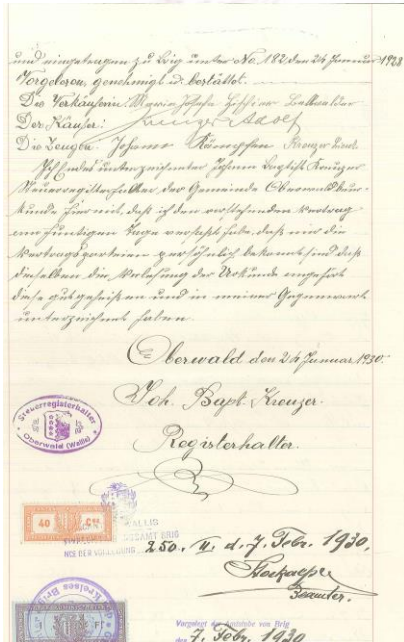 und eingetragen zu Brig unter No. 182 den 24 Januar 1928
Vorgelesen, genehmigt u. bestättet.
Die Verkäuferin: Maria Josepha Hischier
Der Käufer: Kreuzer Adolf
Die Zeugen: Johann Kämpfen Kreuzer
Ich Endes unterzeichneter Johann Baptist Kreuzer
Steuerregisterhalter der Gemeinde Oberwald beur-
kunde hiermit, daß ich den vorstehenden Vertrag
am heutigen Tage verfaßt habe, daß mir die
Vertragsparteien persöhnlich bekannt sind daß
dieselben die Vorlesung der Urkunde angehört
diese gutgeheißen und in meiner Gegenwart
unterzeichnet haben.
Oberwald den 24 Januar 1930.
Joh. Bapt. Kreuzer.
Registerhalter.
Steuerregisterhalter
Oberwald (Wallis)
40 Cts
WALLIS
AMT BRIG
250. II. d. 7. Febr. 1930.
Beamter.
Kreises Brig
Vorgelegt der Amtstube von Brig
den 7. Febr. 1930